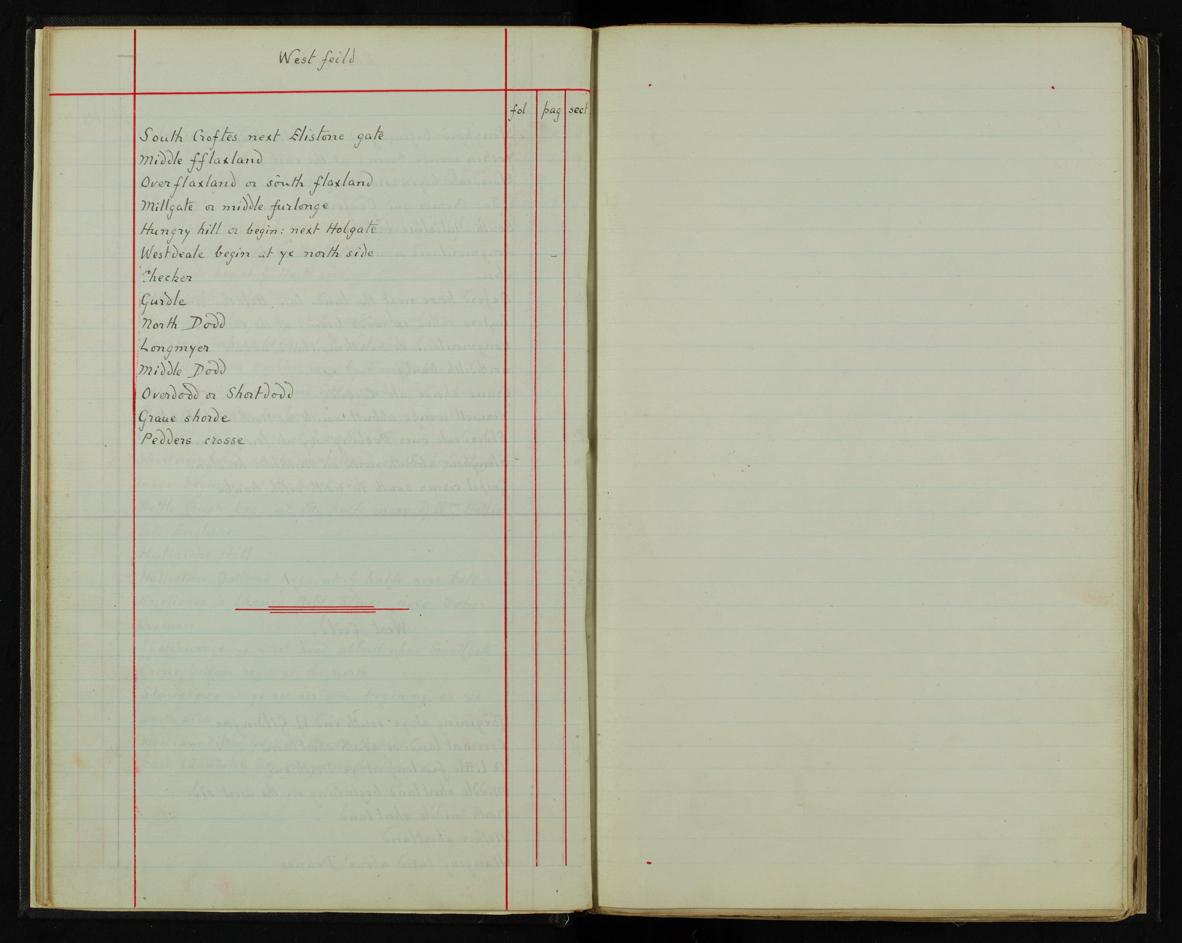 West feild
fol pag sect
South Croftes next Elistone gate
Middle fflaxland
Overflaxland or south flaxland
Millgate or middle furlonge
Hungry hill or begin: next Holgate
Westdeale begin at ye north side
Checker
Gurdle
North Dodd
Longmyer
Middle Dodd
Overdodd or Shortdodd
Graue shorde
Pedders crosse